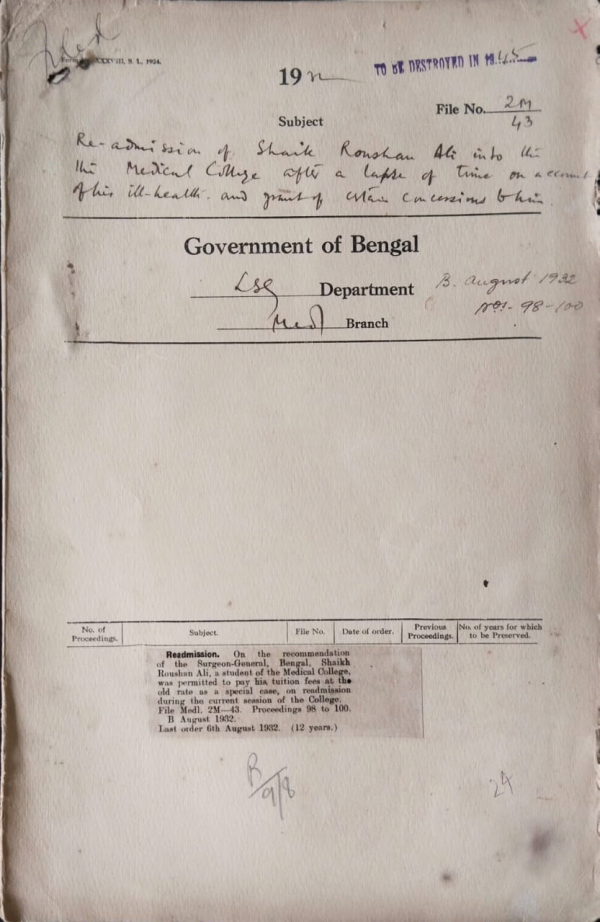 Filed
XXXVIII, S. L, 1924.
19
TO BE DESTROYED IN 1945
File No. 2M/43
Subject
Re-admission of Shaik Roushan Ali into the
the Medical College after a lapse of time on account
of his ill-health and grant of certain concessions to him.
Government of Bengal
LSG Department
B. August 1932
Nos- 98-100
Medl Branch
No. of Proceedings. Subject. File No. Date of order. Previous Proceedings. No. of years for which to be Preserved.
Readmission. On the recommendation
of the Surgeon-General, Bengal, Shaikh
Roushan Ali, a student of the Medical College,
was permitted to pay his tuition fees at the
old rate as a special case, on readmission
during the current session of the College.
File Medl. 2M—43. Proceedings 98 to 100.
B August 1932.
Last order 6th August 1932. (12 years.)
B
9/8
24